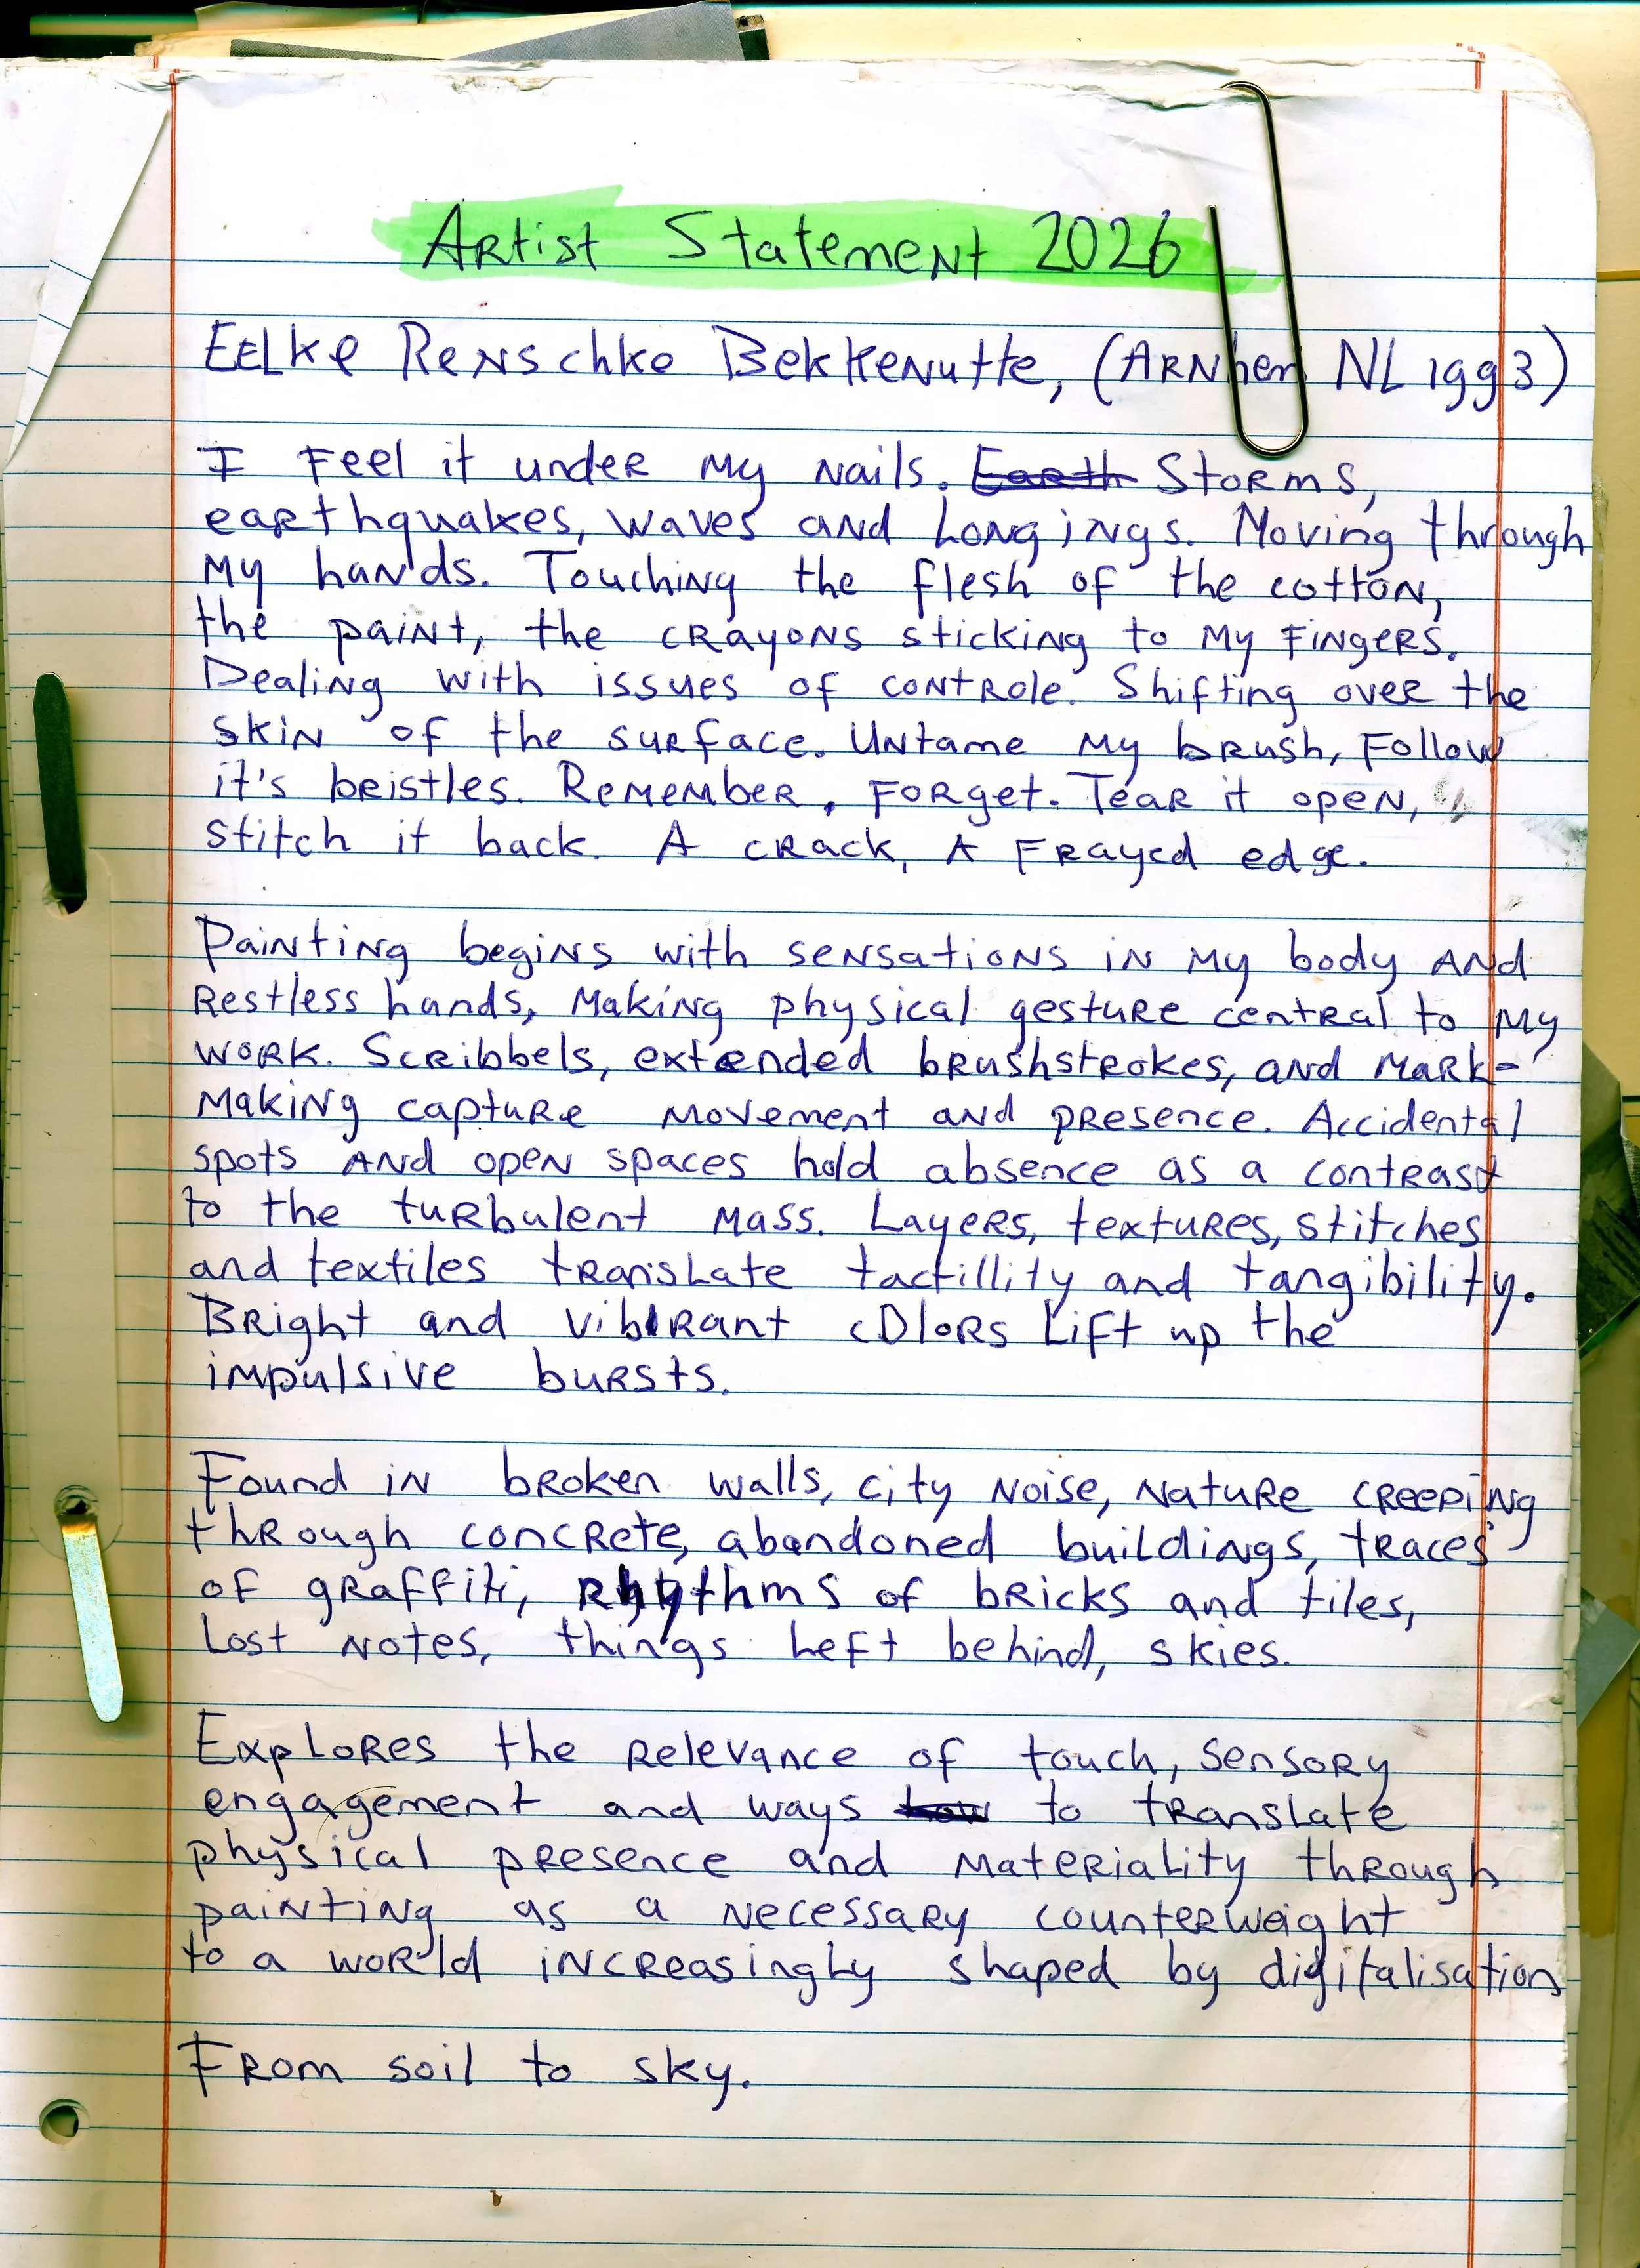 Artist Statement 2026
Eelke Renschke Bekkenutte, (Arnhem NL 1993)
I feel it under my nails. ~~Earth~~ Storms,
earthquakes, waves and longings. Moving through
my hands. Touching the flesh of the cotton,
the paint, the crayons sticking to my fingers.
Dealing with issues of controle. Shifting over the
skin of the surface. Untame my brush, follow
it's bristles. Remember, forget. Tear it open,
stitch it back. A crack, A frayed edge.
Painting begins with sensations in my body and
restless hands, making physical gesture central to my
work. Scribbels, extended brushstrokes, and mark-
making capture movement and presence. Accidental
spots and open spaces hold absence as a contrast
to the turbulent mass. Layers, textures, stitches
and textiles translate tactillity and tangibility.
Bright and vibrant colors lift up the
impulsive bursts.
Found in broken walls, city noise, nature creeping
through concrete, abandoned buildings, traces
of graffiti, rhythms of bricks and tiles,
lost notes, things left behind, skies.
Explores the relevance of touch, sensory
engagement and ways ~~how~~ to translate
physical presence and materiality through
painting as a necessary counterweight
to a world increasingly shaped by digitalisation
From soil to sky.